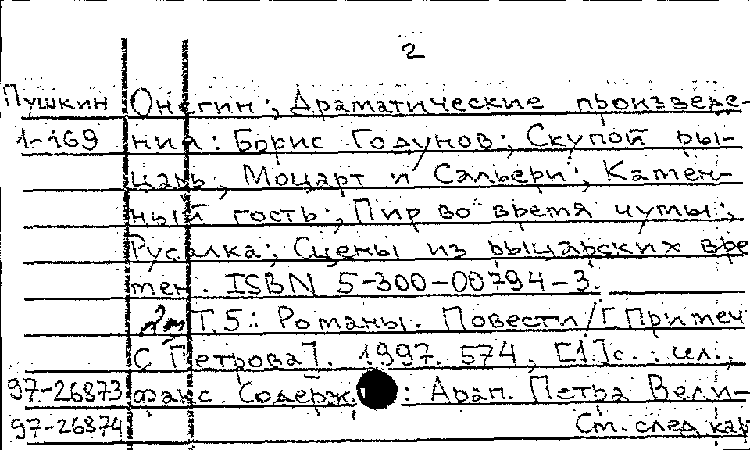 2
Пушкин Онегин; Драматические произведе-
1-169 ния: Борис Годунов; Скупой ры-
царь; Моцарт и Сальери; Камен-
ный гость; Пир во время чумы;
Русалка; Сцены из рыцарских вре
мен. ISBN 5-300-00794-3.
Т.5: Романы. Повести/[Примеч
С Петрова]. 1997. 574, [1]с.: ил.,
97-26873 факс Содерж.: Арап. Петра Вели-
97-26874 См. след кар